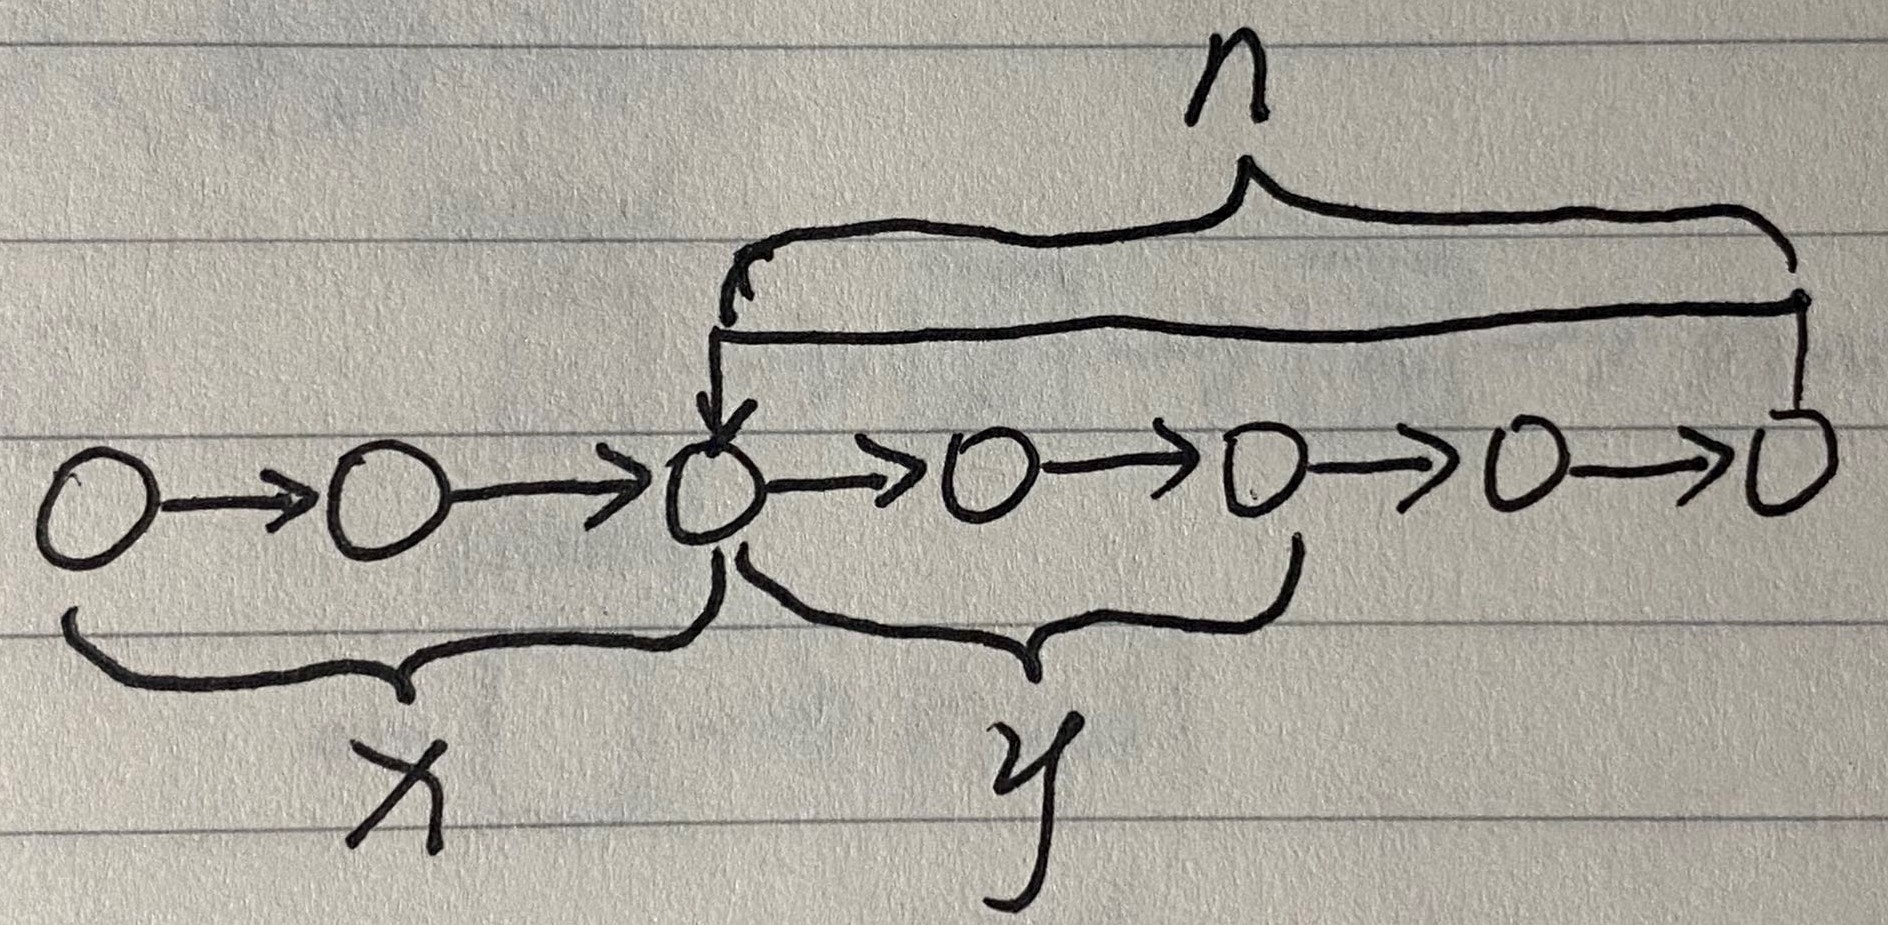 n
x
y